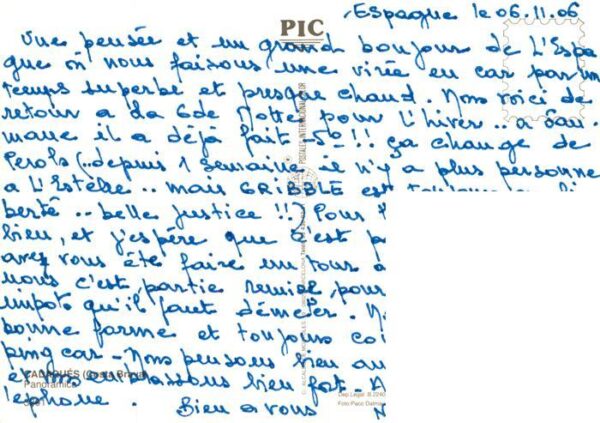 Espagne le 06.11.06
PIC
Une pensée et un grand bonjour de L'Espa
gne où nous faisons une virée en car par un
temps superbe et presque chaud. Nous voici de
retour a
pour L'hiver.. a
il a déjà fait -5°!! ça change de
Perols (..depuis 1 semaine il n'y a plus personne
a L'Estelle.. mais GRIBBLE est
berté.. belle justice!!) Pour
bien, et j'espère que c'est p
avez vous été faire un tour a
nous c'est partie remise, pour
impots qu'il faut démeler. N
bonne forme et toujours co
ping car_ Nous pensons bien au
embrassons bien fort_
CADAQUÉS (Costa Brava)
Panorámica
lephone. Bien a vous N
Dep. Legal: B.2240